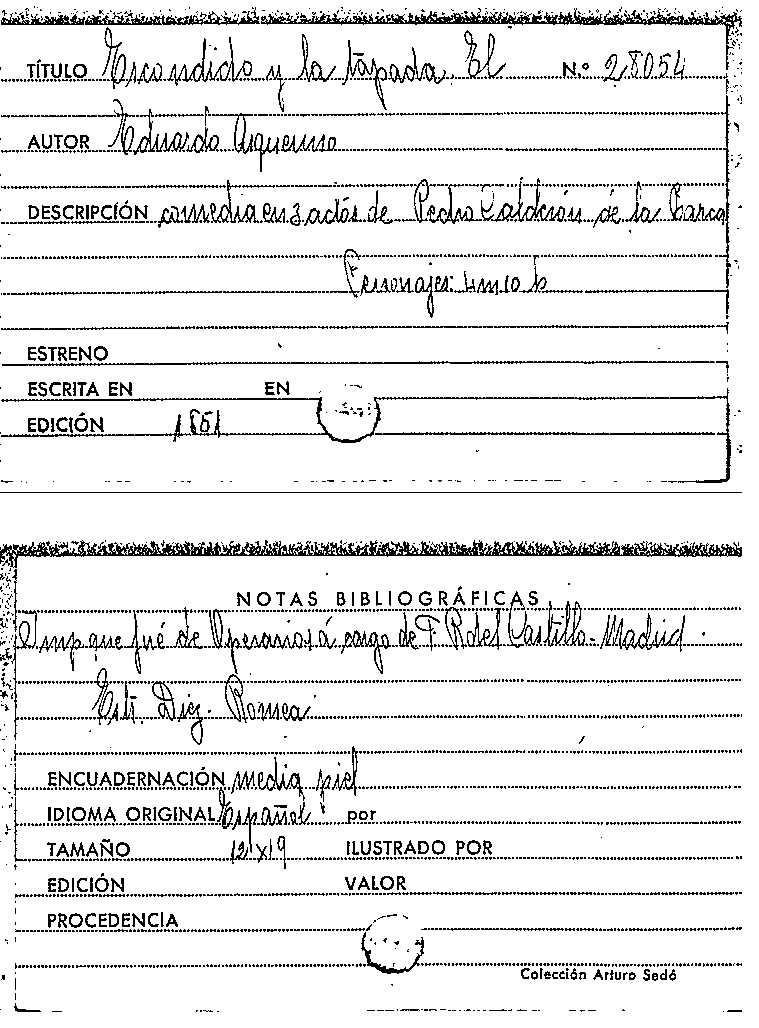 TÍTULO Escondido y la tapada. El N.º 28054
AUTOR Eduardo Asquerino
DESCRIPCIÓN comedia en 3 actos de Pedro Calderón de la Barca
Personajes: 4m 10 h
ESTRENO
ESCRITA EN EN
EDICIÓN 1851
NOTAS BIBLIOGRÁFICAS
Imp que fué de Operarios á cargo de F. R del Castillo - Madrid.
Est. Diez. Romea
ENCUADERNACIÓN media piel
IDIOMA ORIGINAL Español por
TAMAÑO 12 x 19 ILUSTRADO POR
EDICIÓN VALOR
PROCEDENCIA
Colección Arturo Sedó